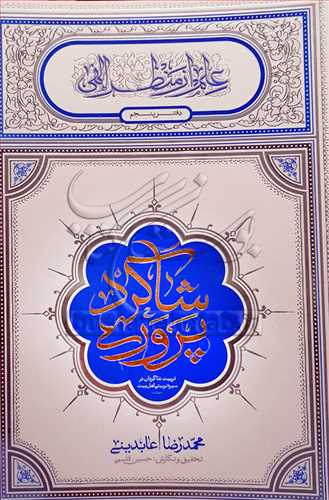 علم از منظر الهی
دفتر پنجم
شاگرد
پروری
تربیت شاگردان در
سیره تربیتی اهل بیت
محمدرضا عابدینی
تحقیق و نگارش: حسین قاسمی